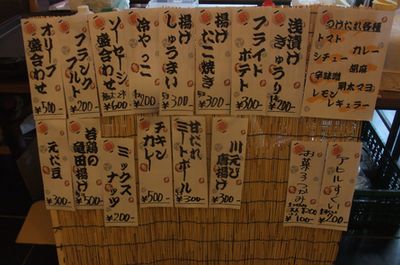 オリーブ
盛合わせ
¥500-
フランク
フルト
¥200-
ソーセージ
盛合わせ
¥600
冷やっこ
¥200
揚げ
しゅうまい
¥300
揚げ
たこ焼き
¥300
フライド
ポテト
¥300-
浅漬け
きゅうり
¥200-
つけだれ各種
トマト
カレー
シチュー
胡麻
辛味噌
明太マヨ
レモン
レギュラー
元だ豆
¥300
若鶏の
竜田揚げ
¥500
ミックス
ナッツ
¥200-
チキン
カレー
¥500-
甘だれ
ミートボール
¥200-
川えび
唐揚げ
¥300
お茶
¥100-
アヒェすくい
¥200-